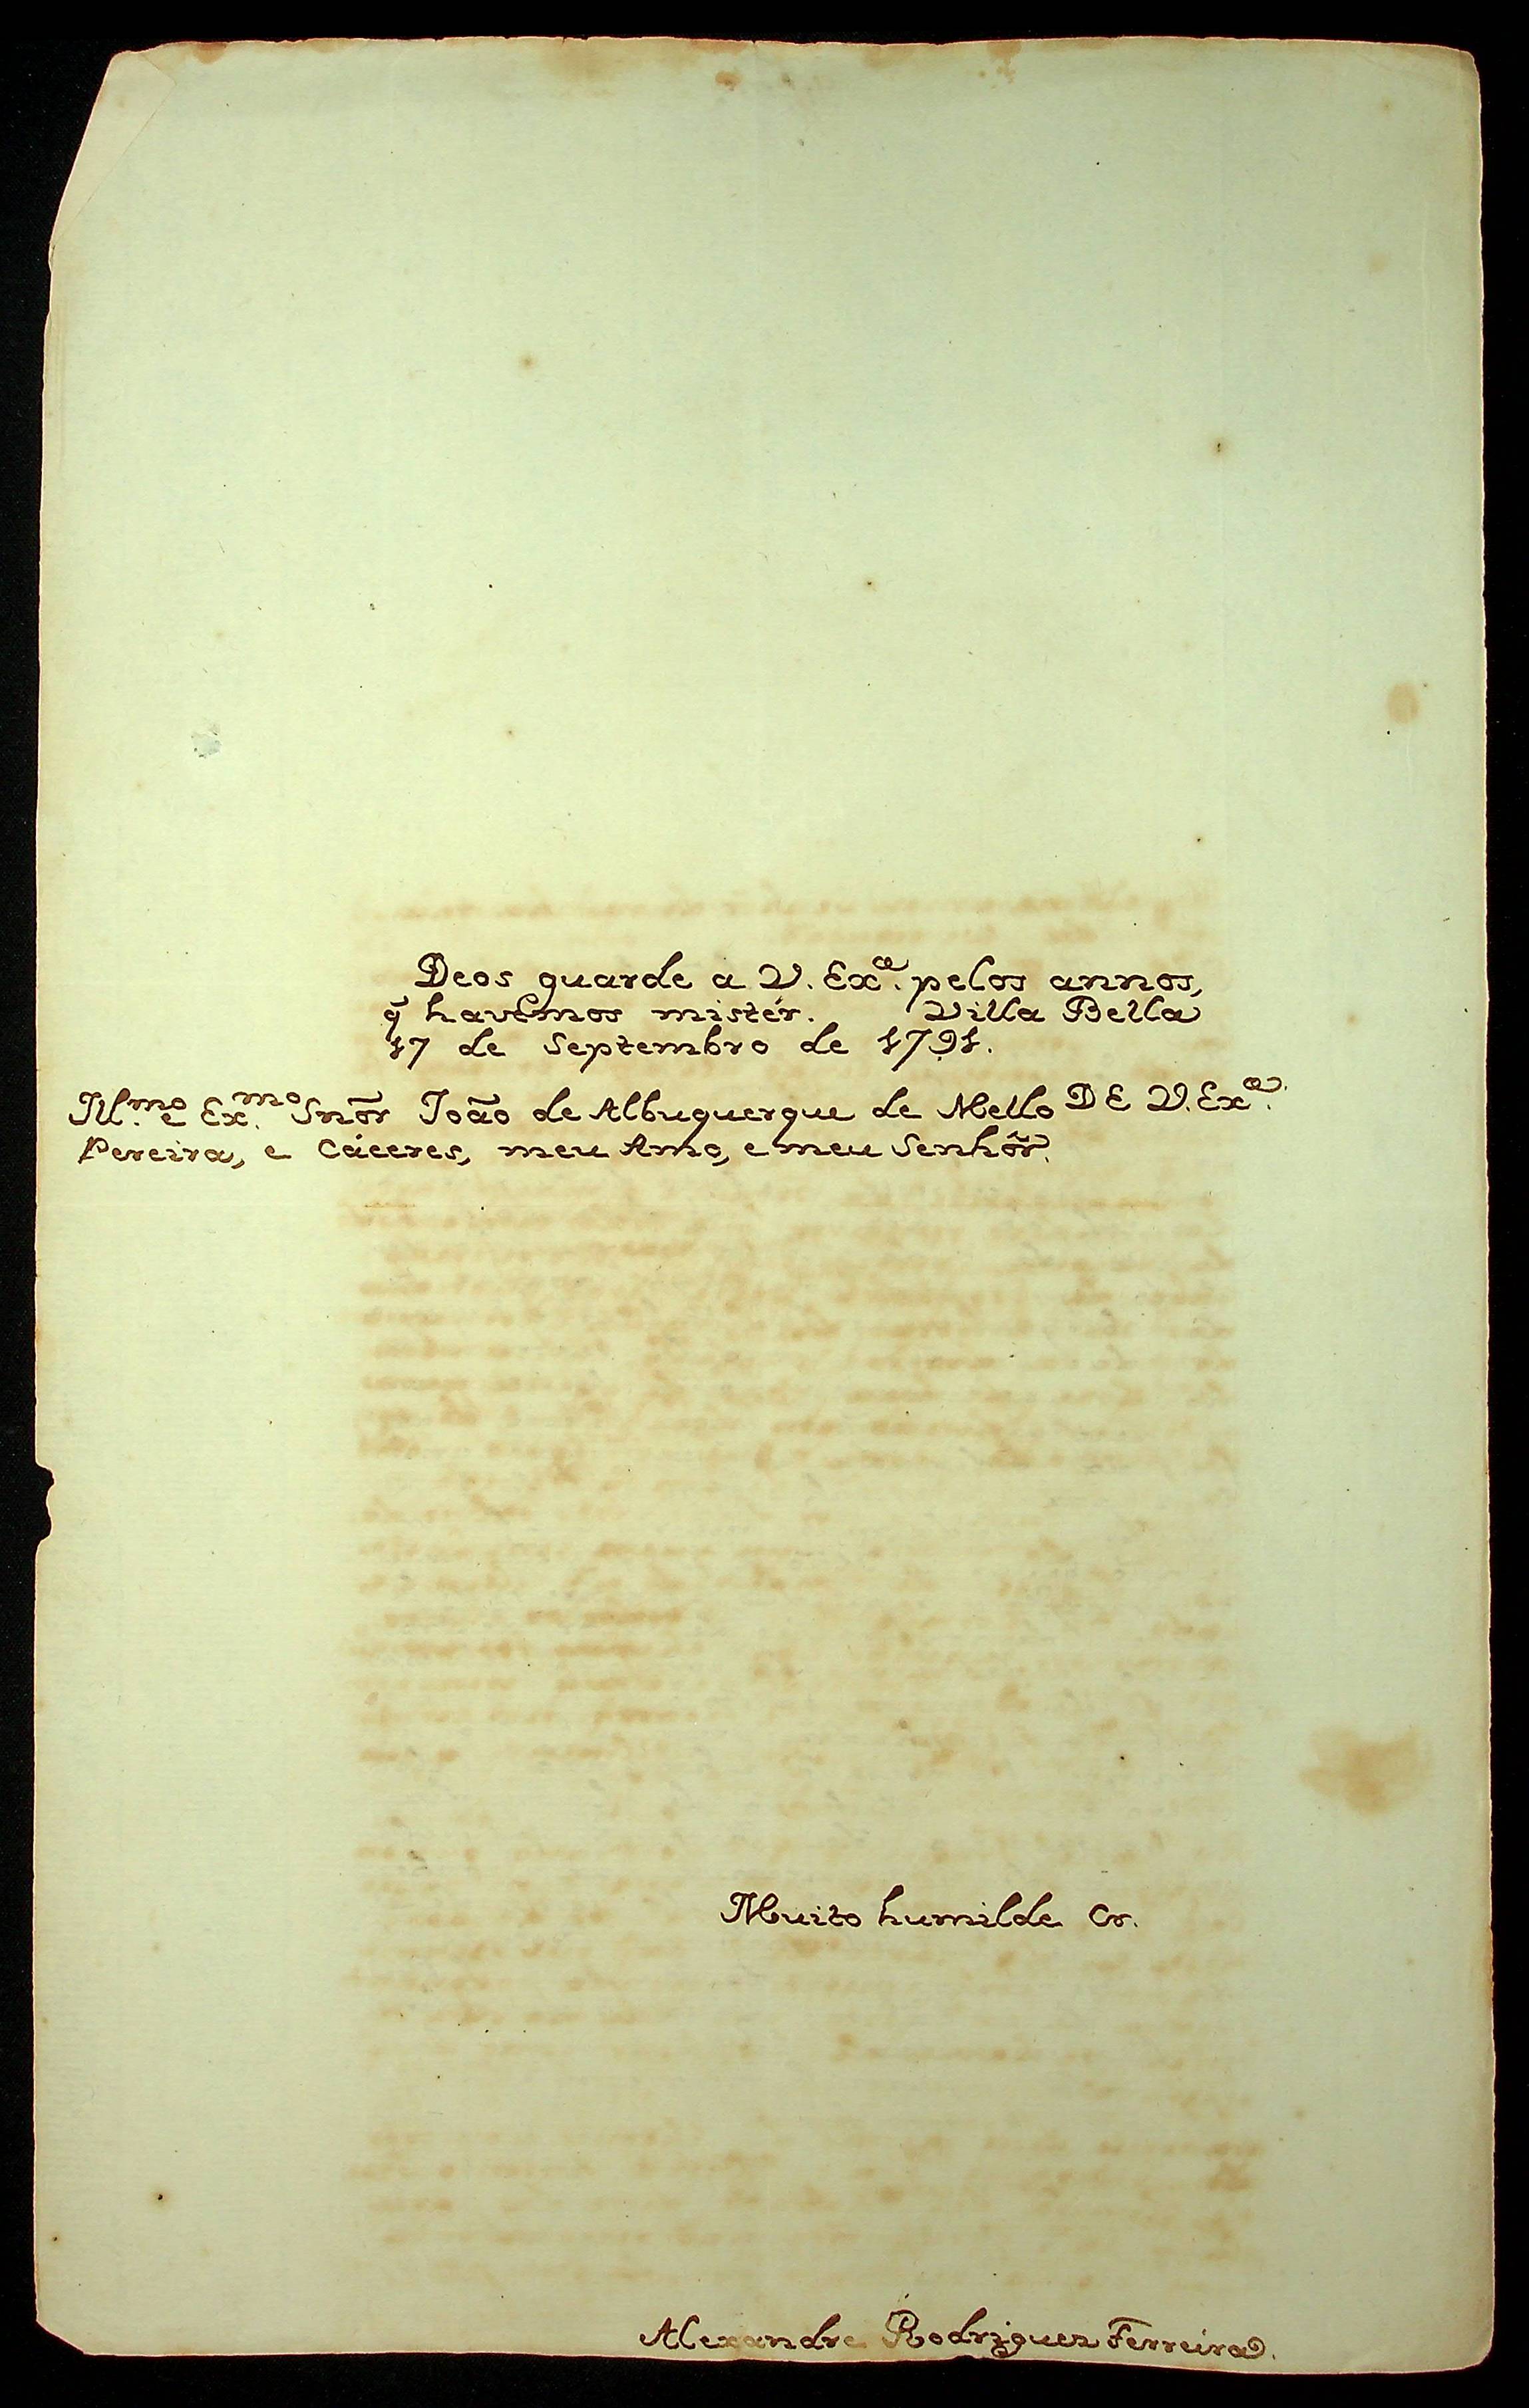 Deos guarde a V. Exª. pelos annos,
q̃ havêmos mistér. Villa Bella
17 de Septembro de 1791.
Ill.mo e Ex.mo Snõr João de Albuquerque de Mello DE V. Exª.
Pereira, e Cáceres, meu Amo, e meu Senhôr.
Muito humilde Cr.
Alexandre Rodriguez Ferreira.